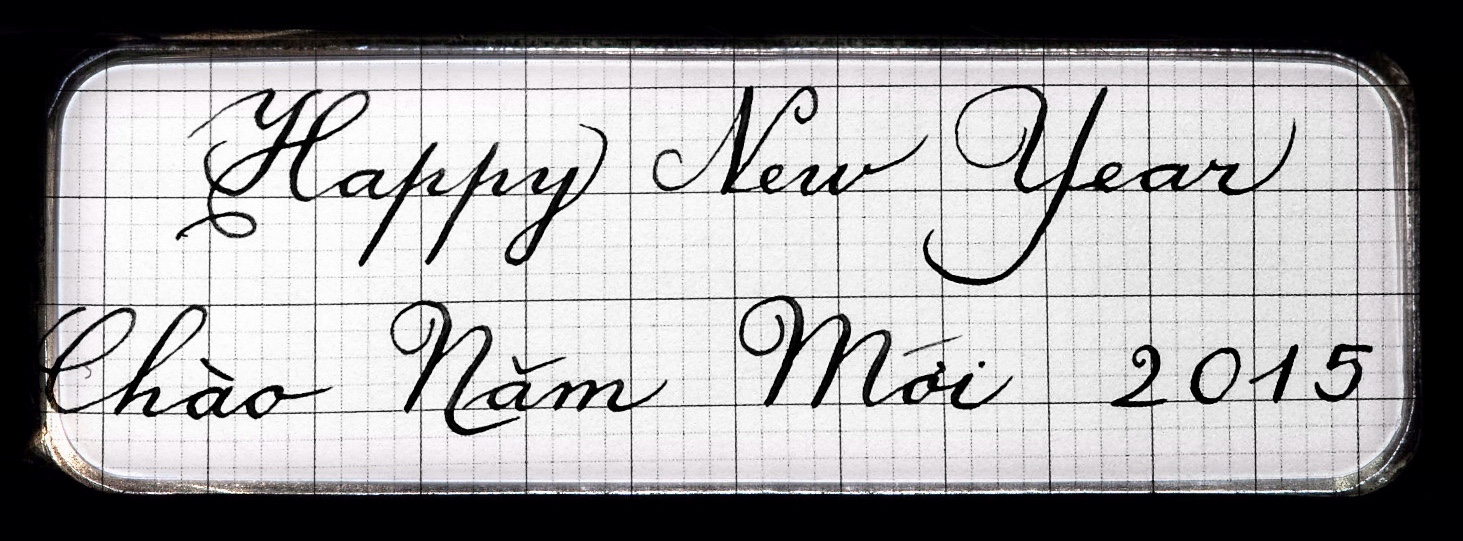 Happy New Year
Chào Năm Mới 2015